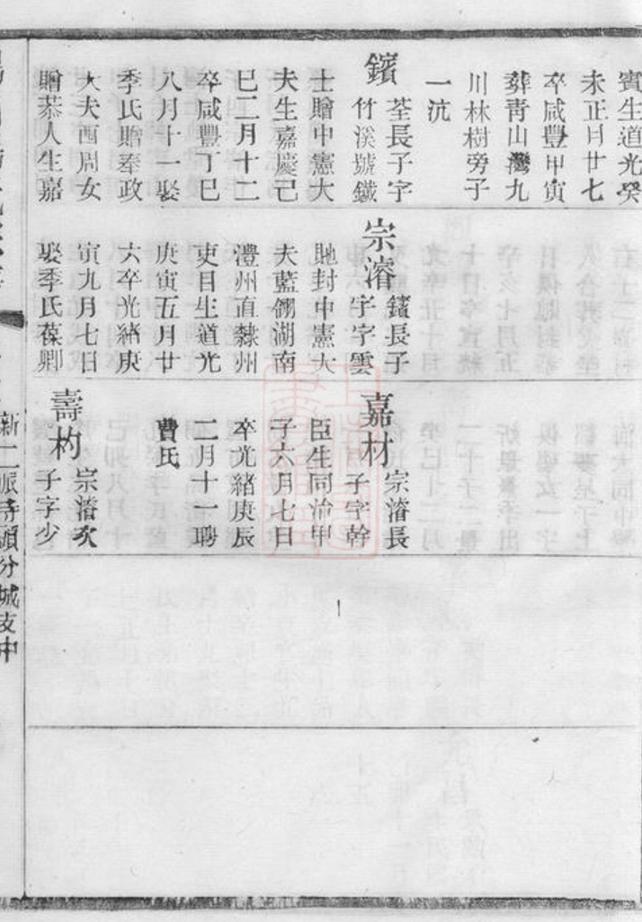 賓生道光癸
未正月廿七
卒咸豐甲寅
葬青山灣九
川林樹旁子
一沆
鑌
荃長子字
竹溪號鐵
士贈中憲大
夫生嘉慶己
巳二月十二
卒咸豐丁巳
八月十一娶
季氏贈奉政
大夫酉周女
贈恭人生嘉
宗濬
鑌長子
字字雲
貤封中憲大
夫藍翎湖南
澧州直隸州
吏目生道光
庚寅五月廿
六卒光緒庚
寅九月七日
娶季氏葆卿
嘉材
宗濬長
子字幹
臣生同治甲
子六月七日
卒光緒庚辰
二月十一聘
費氏
壽杓
宗濬次
子字少
新二派寺頭分城支中